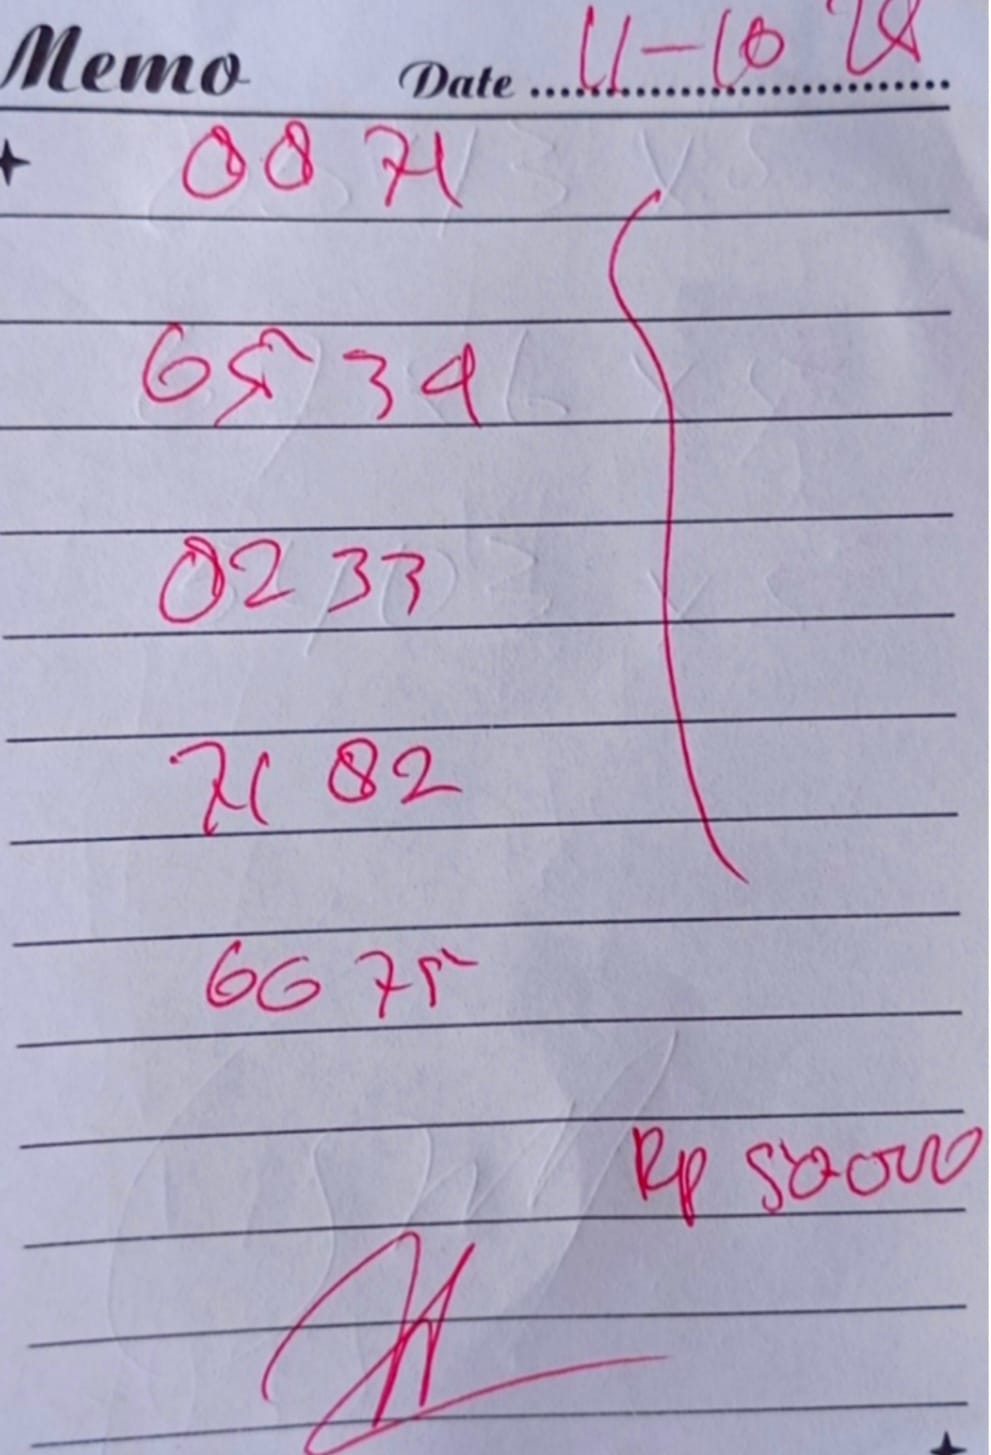 Memo Date 11-10 28
08 71
65 34
02 33
71 82
66 75
Rp 50000